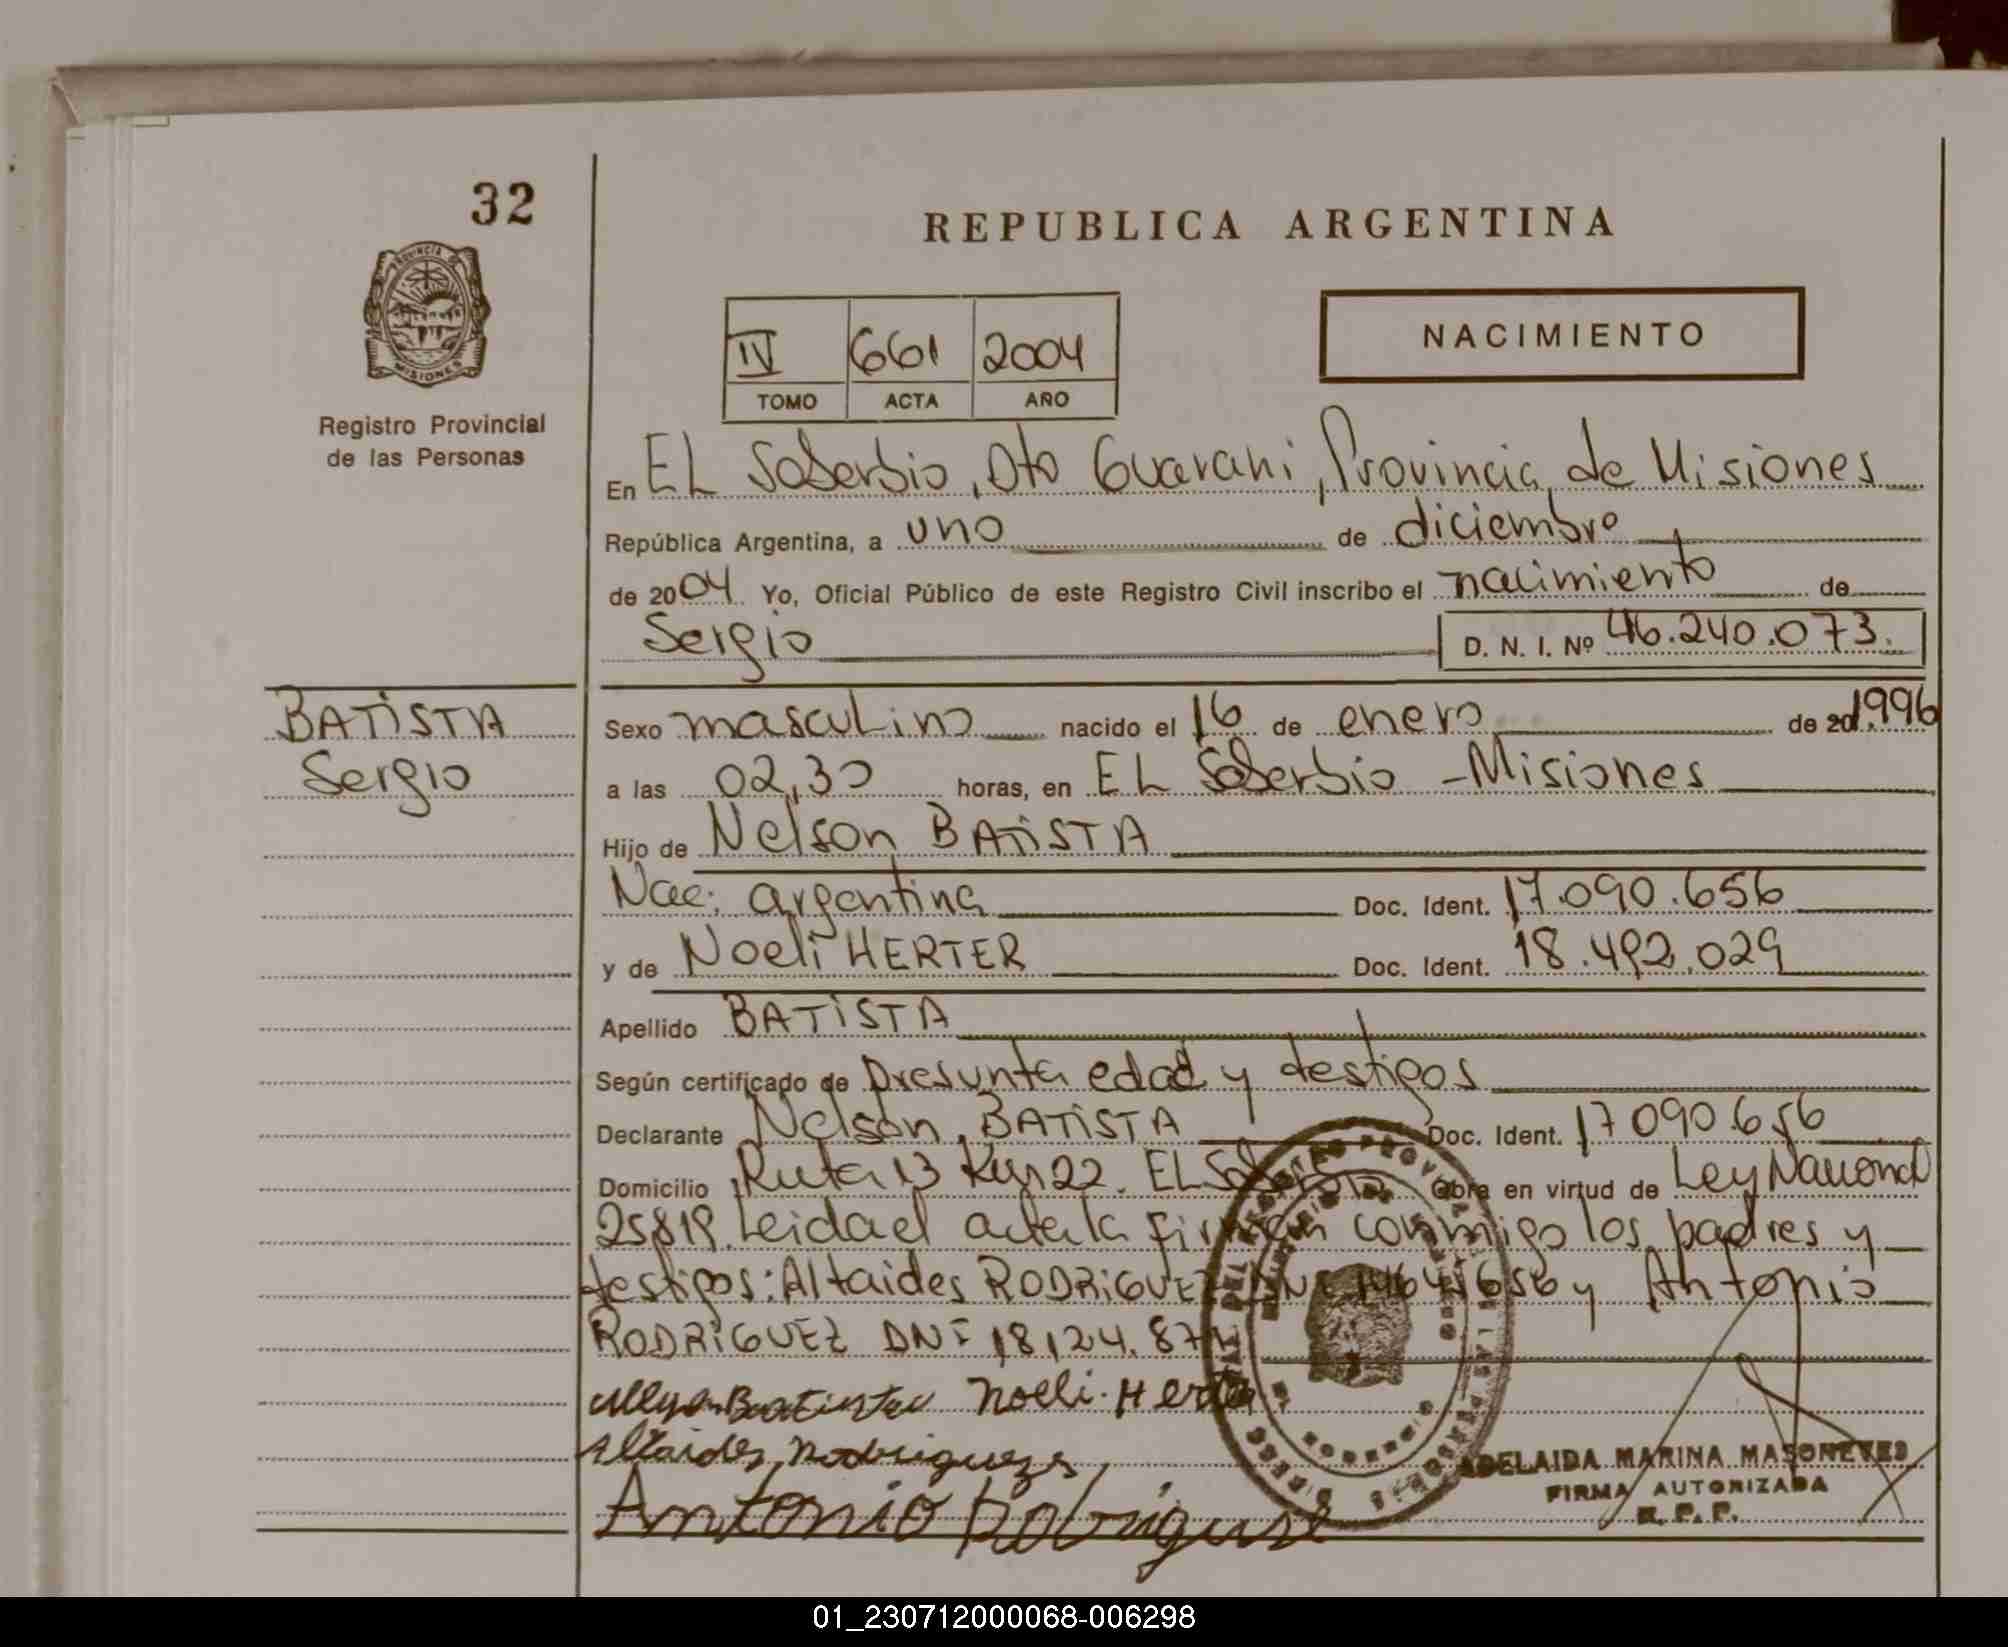 32
REPUBLICA ARGENTINA
PROVINCIA DE
MISIONES
Registro Provincial
de las Personas
IV 661 2004
TOMO ACTA AÑO
NACIMIENTO
En EL Soberbio, Dto Guarani, Provincia de Misiones
República Argentina, a uno de diciembre
de 2004 Yo, Oficial Público de este Registro Civil inscribo el nacimiento de
Sergio D. N. I. Nº 46.240.073.
BATISTA
Sergio
Sexo masculino nacido el 16 de enero de 20 1996
a las 02,30 horas, en EL Soberbio - Misiones
Hijo de Nelson BATISTA
Nac: argentina Doc. Ident. 17.090.656
y de Noeli HERTER Doc. Ident. 18.492.029
Apellido BATISTA
Según certificado de Presunta edad y testigos
Declarante Nelson BATISTA Doc. Ident. 17090.656
Domicilio Ruta 13 Km 22. EL Soberbio Obra en virtud de Ley Nacional
25819. Leida el acta la firman conmigo los padres y
testigos: Altaides RODRIGUEZ DNI y Antonio
RODRIGUEZ DNI 18.124.871
Batista Noeli. Herter
Altaides Rodriguezes
Antonio Rodriguese
ADELAIDA MARINA MASONEVES
FIRMA AUTORIZADA
R. P. P.
01_230712000068-006298